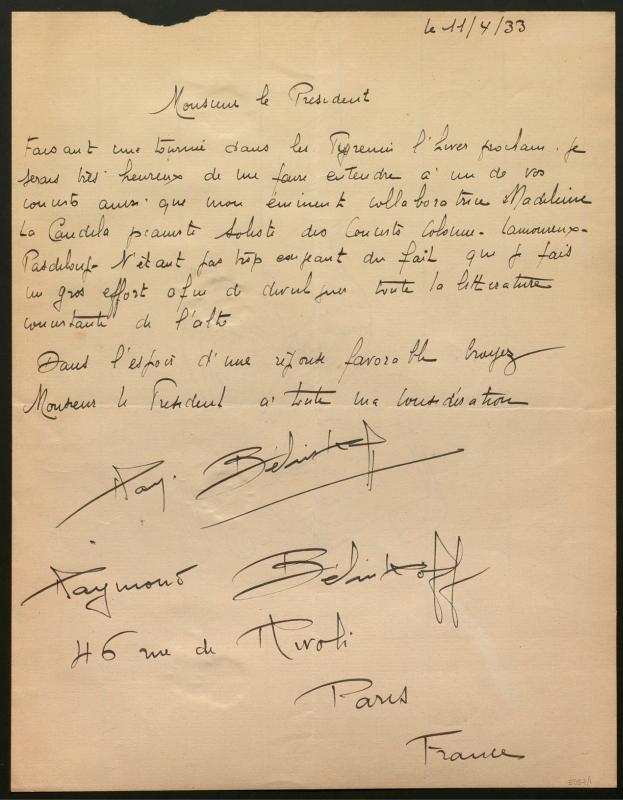 le 11/4/33
Monsieur le Président
Faisant une tournée dans les Pyrenées l'hiver prochain. Je
serais très heureux de me faire entendre à un de vos
concerts ainsi que mon éminente collaboratrice Madeleine
La Candela pianiste soliste des Concerts Colonne - Lamoureux -
Pasdeloup. N'étant pas trop exigeant du fait que je fais
un gros effort afin de divulguer toute la littérature
concertante de l'alto
Dans l'espoir d'une réponse favorable Croyez
Monsieur le President à toute ma considération
Ray. Bélinkoff
Raymond Bélinkoff
46 rue de Rivoli
Paris
France